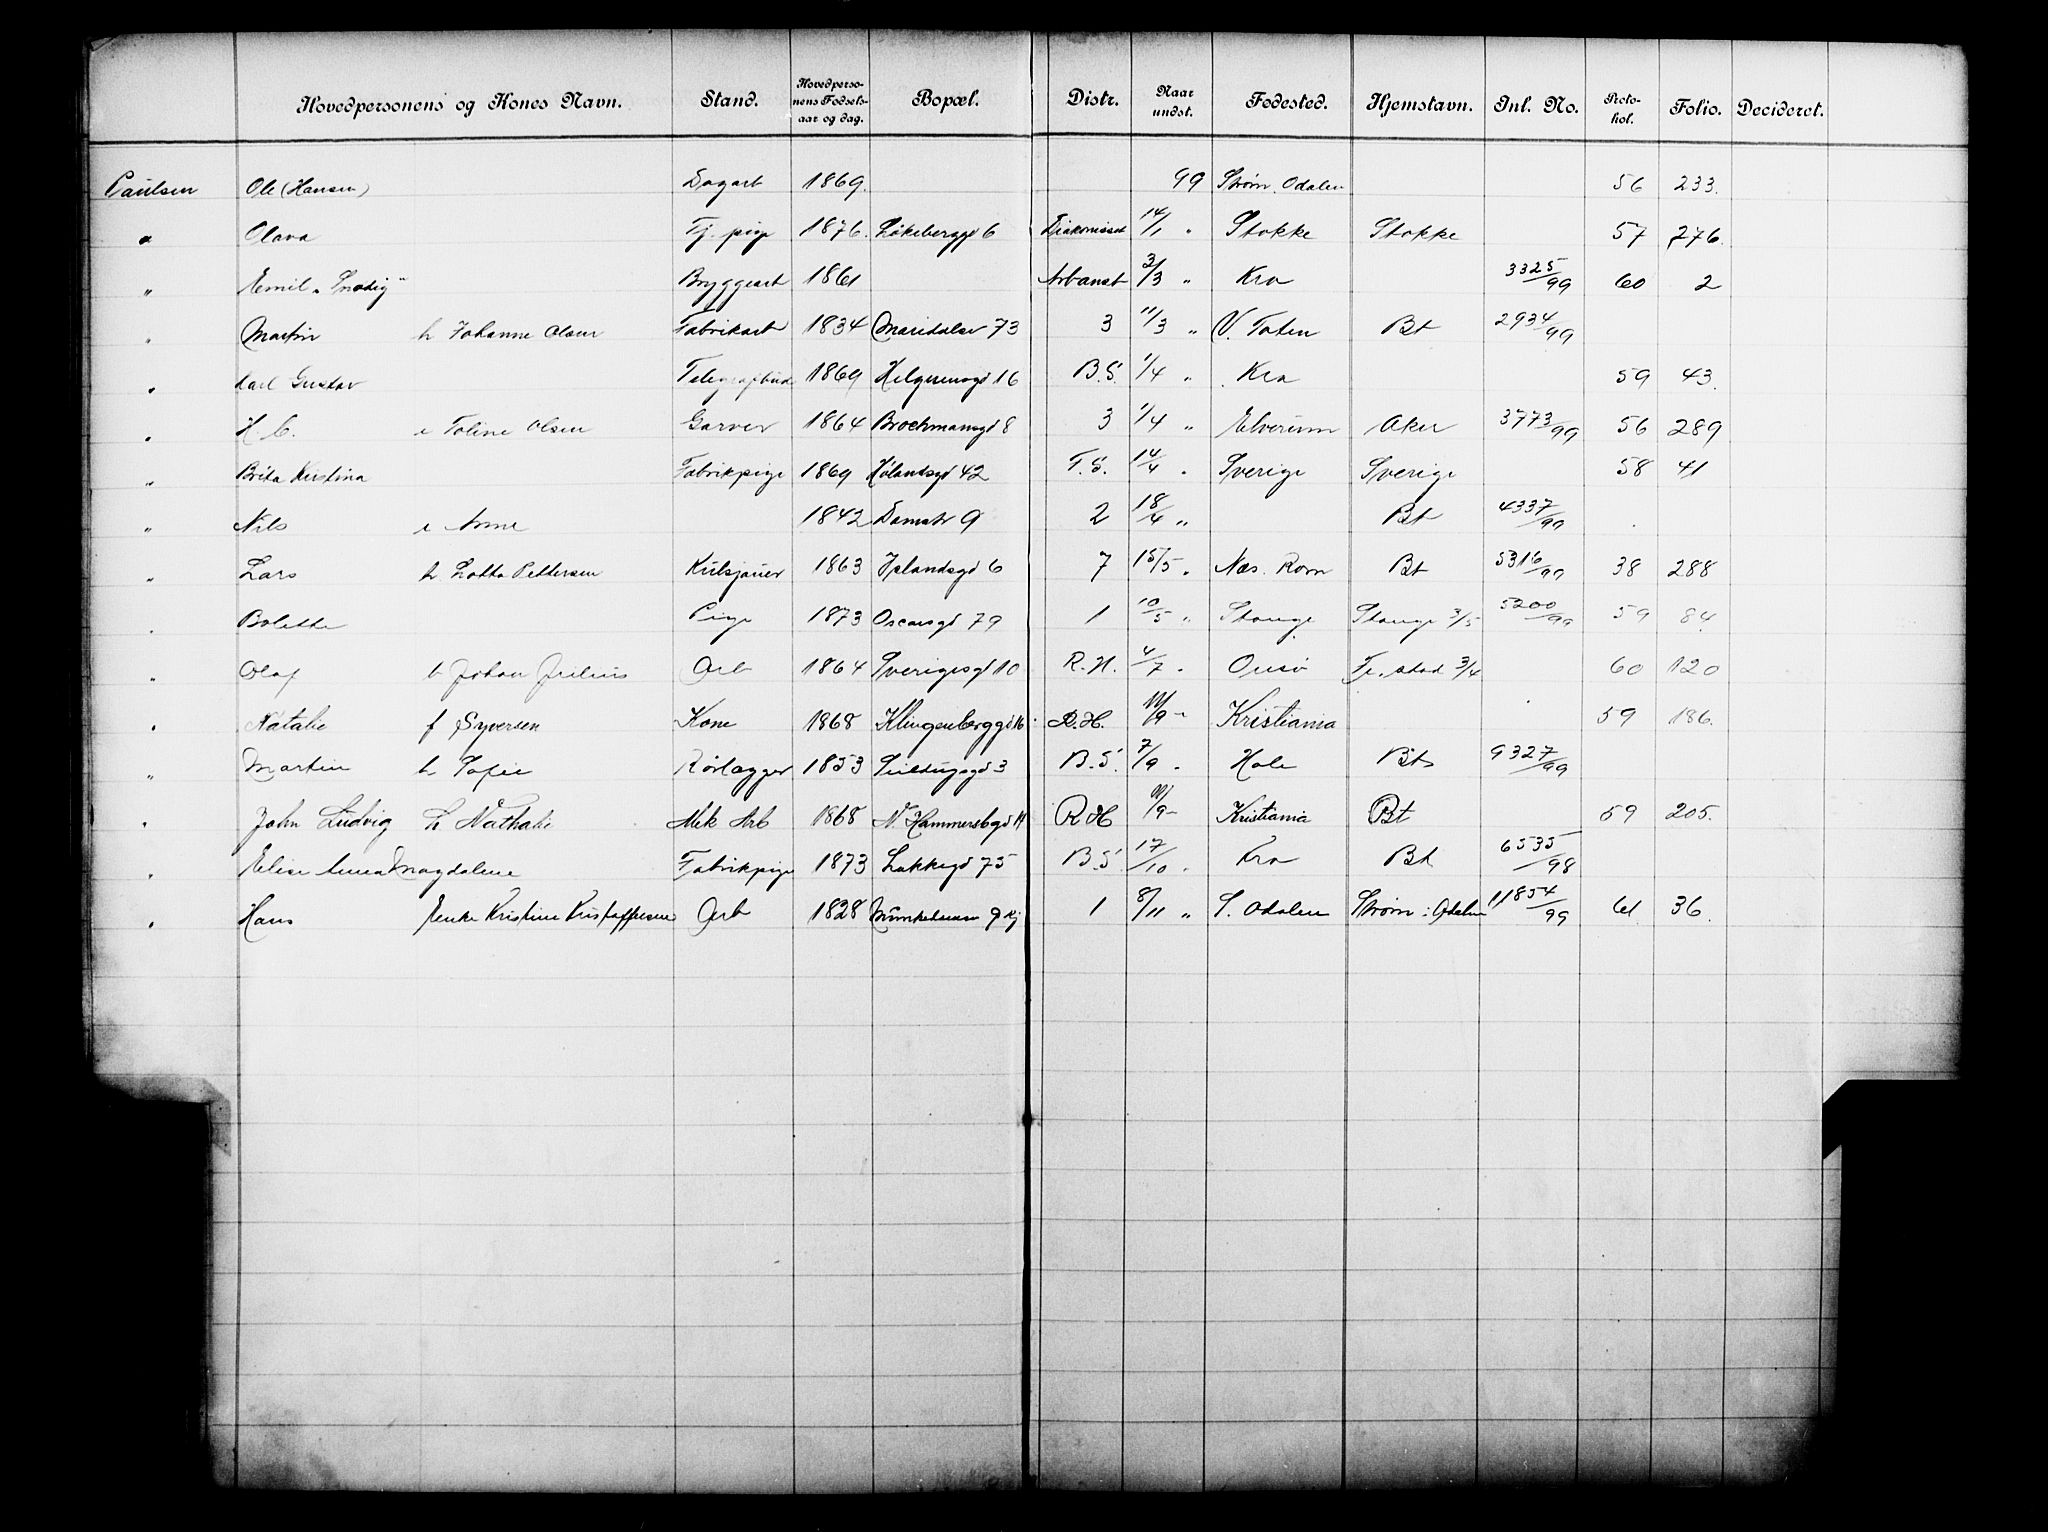 Hovedpersonens og Kones Navn. Stand. Hovedpersonens Fødselsaar og dag. Bopæl. Distr. Naar undst. Fødested. Hjemstavn. Inl. No. Protokol. Folio. Decideret.
Paulsen Ole (Hansen) Dagarb 1869. 99 Strøm. Odalen 56 233.
" Olava Tj. pige 1876. Løkeberggd 6 Diakonisseh 14/1 " Stokke Stokke 57 276.
" Emil "Snodig" Bryggearb 1861 Arbanst 3/3 " Kra 3325/99 60 2
" Martin h Johanne Olsen Fabrikarb 1834 Maridalsv 73 3 11/3 " V. Toten Bt 2934/99
" Karl Gustav Telegrafbud 1869 Helgesensgd 16 B.S. 1/4 " Kra 59 43.
" H C. e Toline Olsen Garver 1864 Brochmansgd 8 3 1/4 " Elverum Aker 3773/99 56 289
" Brita Kristina Fabrikpige 1869 Hølandsgd 42 T.S. 14/4 " Sverige Sverige 58 41
" Nils e Anne 1842 Damstr 9 2 18/4 " Bt 4337/99
" Lars h Lotta Pettersen Kulsjauer 1863 Islandsgd 6 7 15/5 " Næs. Rom Bt 5316/99 38 288
" Bolette Pige 1873 Oscarsgd 79 1 10/5 " Stange Stange 3/5 5200/99 59 84.
" Olaf b Johan Julius Arb 1864 Sverigesgd 10 R.H. 4/7 " Onsø Fr.stad 3/4 60 120
" Natalie f Syversen Kone 1868 Klingenberggd 16 R.H. /9 - Kristiania 59 186.
" Martin h Sofie Rørlægger 1853 3 B.S. 7/9 " Hole Bt 9327/99
" John Ludvig h Nathalie Mek Arb 1868 N. Hammersbgd 11 RH /9 - Kristiania Bt 59 205.
" Elise Anna Magdalene Fabrikpige 1873 Lakkegd 75 B.S 17/10 " Kra Bt 6535/98
" Hans Enke Kristine Kristoffersen Arb 1828 Munkedam 9 kj 1 8/11 " S. Odalen Strøm i Odalen 11854/99 61 36.